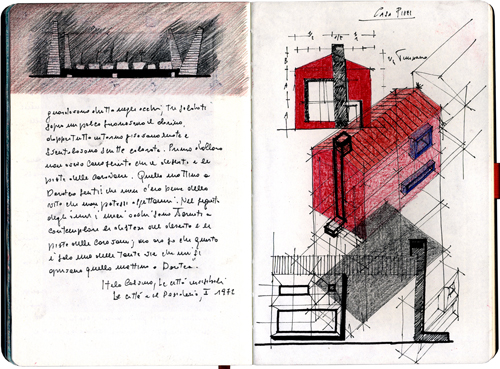 guardavano dritto negli occhi, tre soldati
sopra un palco suonavano il clarino,
dappertutto intorno giravano ruote e
sventolavano scritte colorate. Prima d'allora
non avevo conosciuto che il deserto e le
piste delle carovane. Quella mattina a
Dorotea sentii che non c'era bene della
vita che non potessi aspettarmi. Nel seguito
degli anni i miei occhi sono tornati a
contemplare le distese del deserto e le
piste delle carovane; ma ora so che questa
è solo una delle tante vie che mi si
aprivano quella mattina a Dorotea.
Italo Calvino, Le città invisibili
Le città e il Desiderio, 1972
Casa